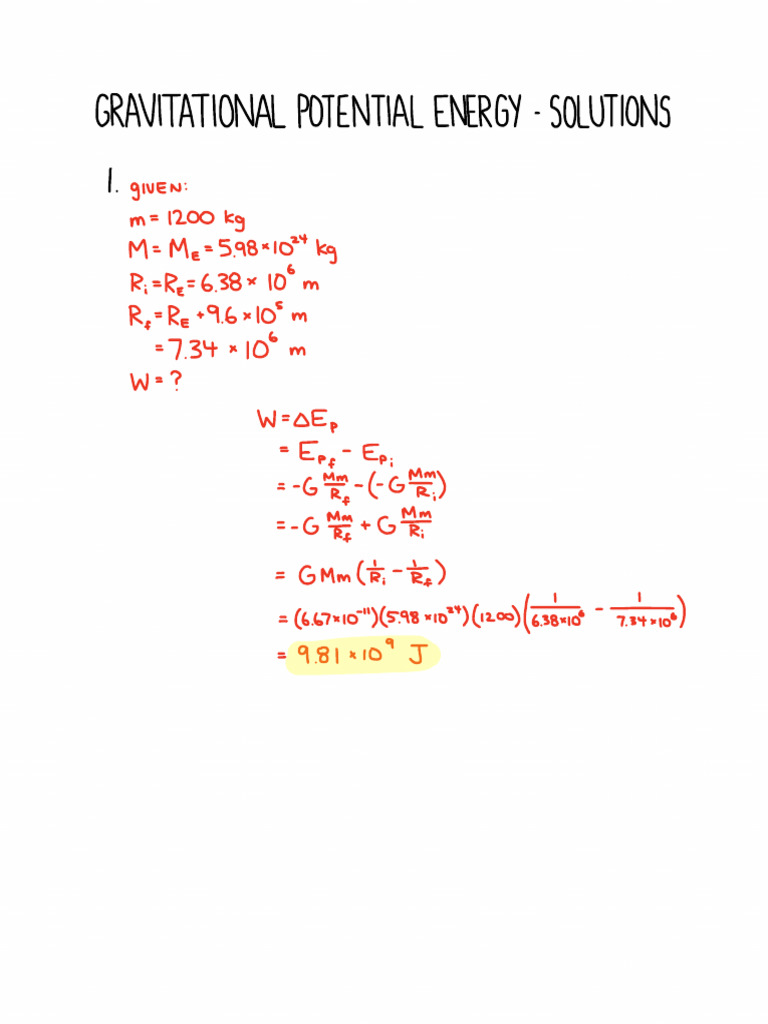 GRAVITATIONAL POTENTIAL ENERGY - SOLUTIONS
1. GIVEN:
m = 1200 kg
M = M_E = 5.98 × 10^24 kg
R_i = R_E = 6.38 × 10^6 m
R_f = R_E + 9.6 × 10^5 m
= 7.34 × 10^6 m
W = ?
W = ΔE_p
= E_pf - E_pi
= -G Mm/R_f - (-G Mm/R_i)
= -G Mm/R_f + G Mm/R_i
= GMm (1/R_i - 1/R_f)
= (6.67×10^-11)(5.98×10^24)(1200)(1/6.38×10^6 - 1/7.34×10^6)
= 9.81 × 10^9 J